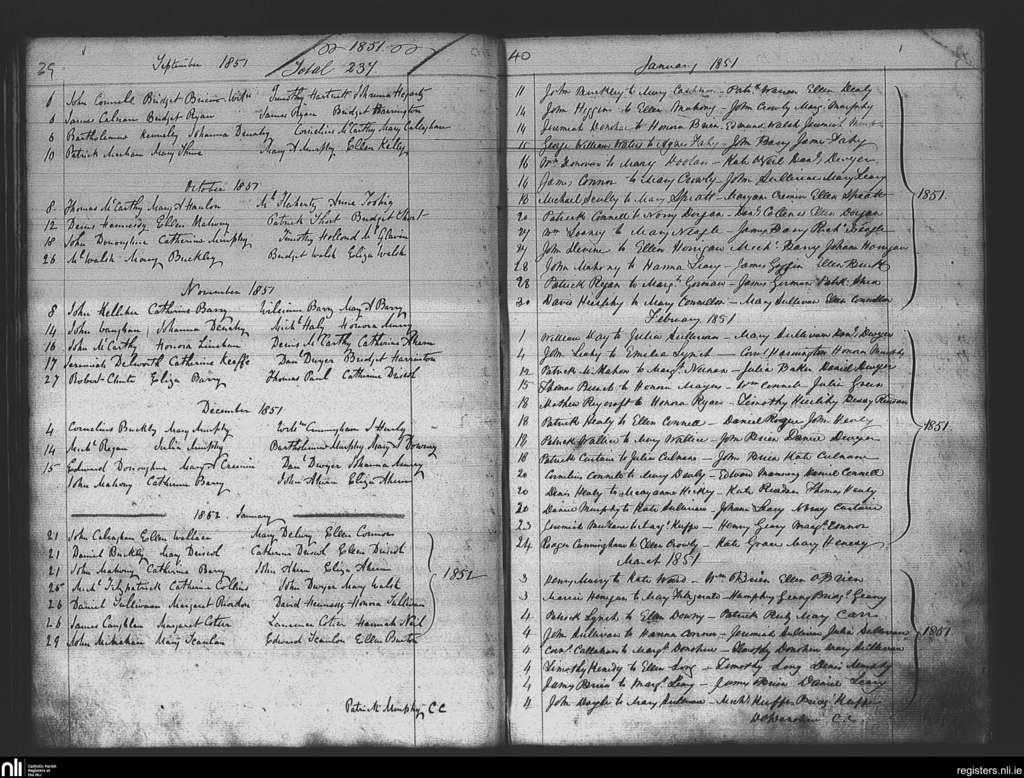 29
September 1851
1851
Total 237
6 John Connell Bridget Timothy Hartnett Johanna Hogarty
6 James Bridget Ryan James Ryan Bridget Harrington
6 Bartholomew Kennely Johanna Denehy Cornelius McCarthy Mary Callaghan
10 Patrick Mary Mary A Murphy Ellen Kelly
October 1851
8 Thomas McCarthy Mary A Hanlon Ml Flaherty Anne
12 Denis Hennessy Ellen Mahony Patrick Bridget
18 John Donoghue Catherine Murphy Timothy Holland Ml Glavin
26 Ml Walsh Mary Buckley Bridget Walsh Eliza Walsh
November 1851
8 John Kelliher Catherine Barry William Barry May A Barry
14 John Vaughan Johanna Denehy Michl Haly Honora
16 John McCarthy Honora Linehan Denis McCarthy Catherine Ahern
17 Jeremiah Catherine Keeffe Danl Dwyer Bridget Harrington
27 Robert Eliza Barry Thomas Paul Catherine Driscol
December 1851
4 Cornelius Buckley Mary Murphy Willm Cunningham J Hurly
14 Michl Regan Julia Murphy Bartholomew Murphy Mary A
15 Edmund Donoghue Mary A Cremin Danl Dwyer Johanna
John Mahony Catherine Barry John Ahern Eliza Ahern
1852 January
21 John Callaghan Ellen Wallace Mary Ellen Connor
21 Daniel Buckley Mary Driscol Catherine Driscol Ellen Driscol
21 John Mahony Catherine Barry John Ahern Eliza Ahern
25 Michl Fitzpatrick Catherine Collins John Dwyer Mary Walsh
26 Daniel Sullivan Margaret Riordan David Hennessy Honora Sullivan
26 James Coughlan Margaret Cotter Cotter Hannah
29 John Mary Scanlan Edmond Scanlon Ellen
1852
Murphy CC
40
January 1851
11 John Buckley to Mary - Patk Ellen Healy
14 John Higgins to Ellen Mahony - John Crowly Marg. Murphy
14 Jeremiah Donohue to Honora Brien Edmund Walsh Jeremiah
15 George William Waters to Agnes Fahy - John Barry Jane Fahy
16 Wm Donovan to Mary Doolan - Kate O'Neil Danl Dwyer
16 James Connor to Mary Crowly - John Sullivan Mary Leary
18 Michael Scully to Mary Spratt - Maryan Cremin Ellen Spratt
20 Patrick Connell to Norry Dorgan - Danl Collins Ellen Dorgan
27 Wm Looney to Mary Neagle - James Barry Richd Neagle
27 John Devine to Ellen Horrigan Michl Johana Horrigan
28 John Mahony to Hanna Leary - James Ellen
28 Patrick Ryan to Margt Gorman - James Gorman Patrk
30 Davis Murphy to Mary Connellan - Mary Sullivan Ellen Connellan
1851
February 1851
1 William Hay to Julia Sullivan - Mary Sullivan Danl Dwyer
4 John Leahy to Emelia Lynch - Corns Harrington Honora Murphy
12 Patrick McMahon to Margt Noonan - Julia Baker Daniel Dwyer
15 Thomas to Honora - Wm Connell Julia Green
18 Roycroft to Honora Ryan - Timothy
18 Patrick Healy to Ellen Connell - Daniel John Healy
18 Patrick Wallace to Mary Wallace - John Brien Daniel Dwyer
18 Patrick Curtain to Julia Culnane - John Brien Kate Culnane
20 Cornelius Connell to Mary Daly - Edward Daniel Connell
20 Denis Healy to Maryanne Hickey - Kate Riordan Thomas Healy
20 Daniel Murphy to Kate Sullivan - Johana Leary Norry Curtain
23 Jeremiah to Margt Keeffe - Henry Geary Margt Connor
24 Roger Cunningham to Ellen Crowly - Kate Grace Mary
1851
March 1851
3 Henry Murry to Kate Ward - Wm O'Brien Ellen O'Brien
3 Horrigan to Mary Fitzgerald - Humphry Geary Bridgt Geary
4 Patrick Lynch to Ellen - Patrick Mary Carr
4 John Sullivan to Hanna Connor - Jeremiah Sullivan Julia Sullivan
4 Corns Callahan to Margt Donohue - Timothy Donohue Mary Sullivan
4 Timothy to Ellen Long - Timothy Long Denis
4 James Brien to Margt Leary - James Brien Daniel Leary
4 John Doyle to Mary Sullivan - Michl Keeffe Bridgt Keeffe
1851
C.C.
nli Catholic Parish Registers at the NLI
registers.nli.ie